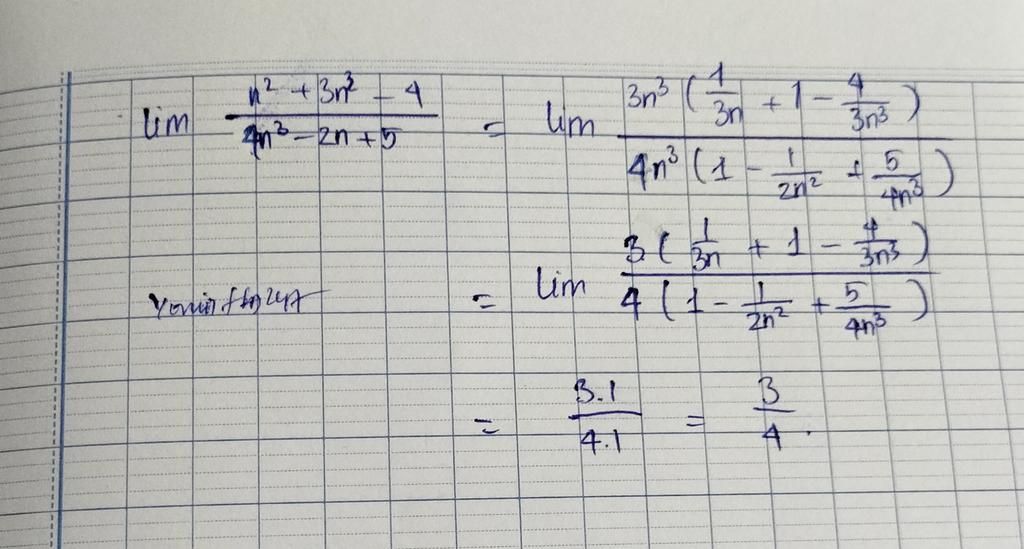 lim (n² + 3n³ - 4)/(4n³ - 2n + 5) = lim (3n³ (1/3n + 1 - 4/3n³))/(4n³ (1 - 1/2n² + 5/4n³))
= lim (3 (1/3n + 1 - 4/3n³))/(4 (1 - 1/2n² + 5/4n³))
= 3.1/4.1 = 3/4.